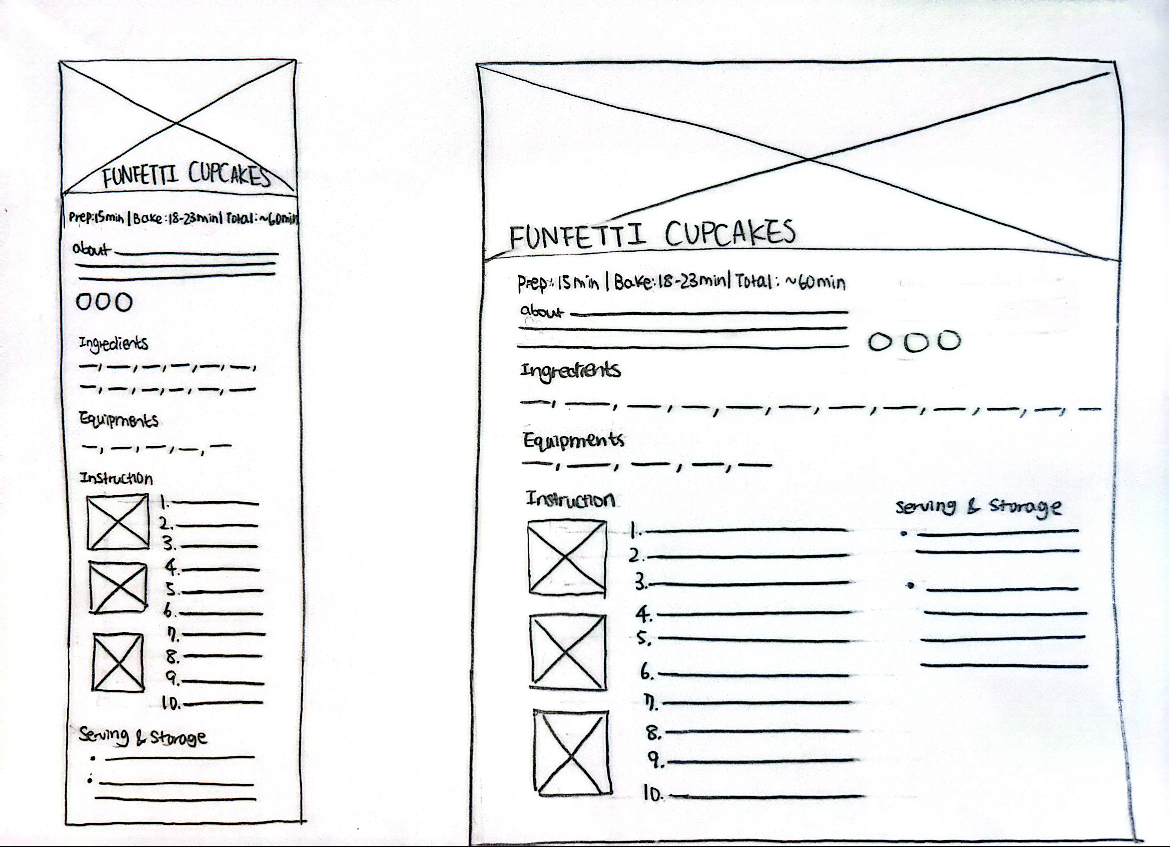 FUNFETTI CUPCAKES
Prep:15min | Bake:18-23min | Total:~60min
about
Ingredients
Equipments
Instruction
1.
2.
3.
4.
5.
6.
7.
8.
9.
10.
Serving & Storage
FUNFETTI CUPCAKES
Prep:15min | Bake:18-23min | Total:~60min
about
Ingredients
Equipments
Instruction
1.
2.
3.
4.
5.
6.
7.
8.
9.
10.
Serving & Storage